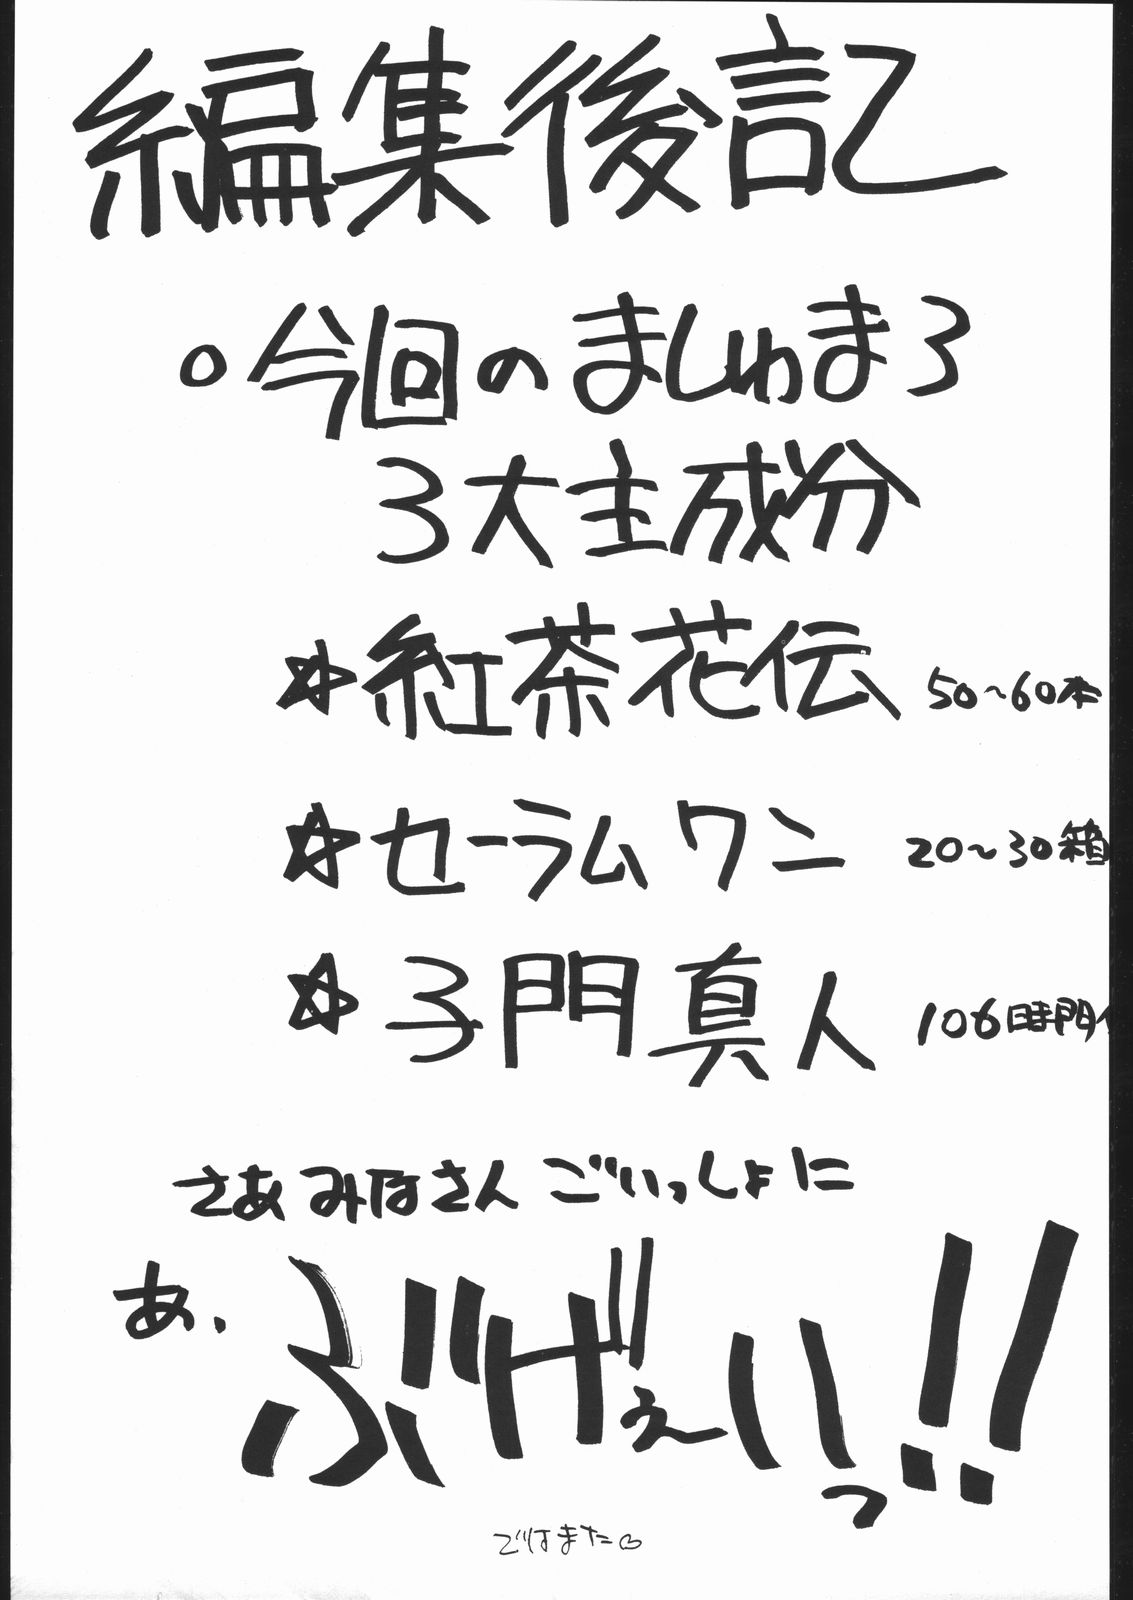 編集後記
○今回のましゅまろ
3大主成分
☆紅茶花伝 50〜60本
☆セーラムワン 20〜30箱
☆子門真人 106時間
さあみなさんごいっしょに
あ、
ぶげぇいっ!!
ではまた♡